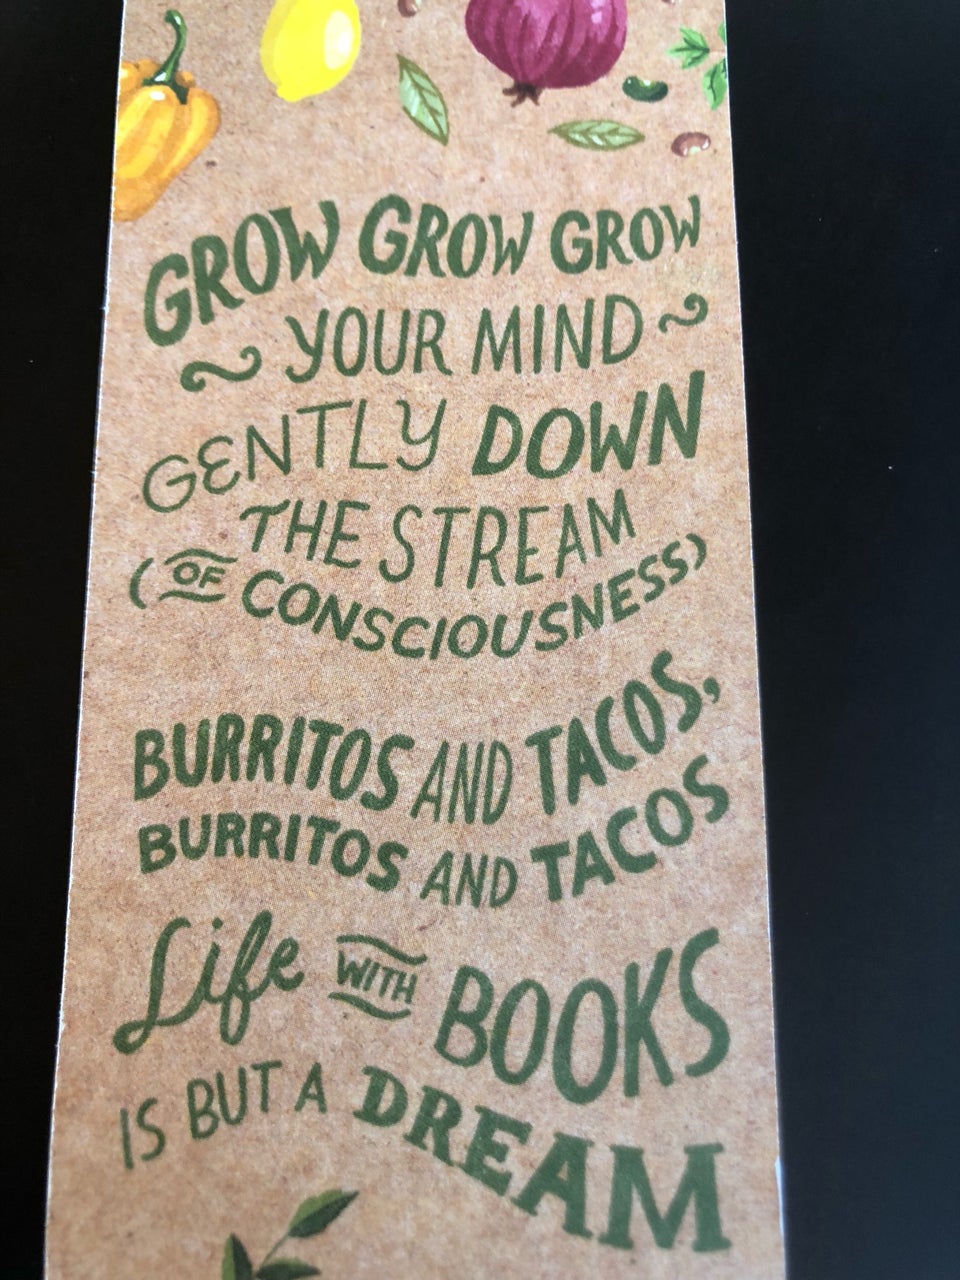 GROW GROW GROW
YOUR MIND
GENTLY DOWN
THE STREAM
(OF CONSCIOUSNESS)
BURRITOS AND TACOS,
BURRITOS AND TACOS
Life WITH BOOKS
IS BUT A DREAM